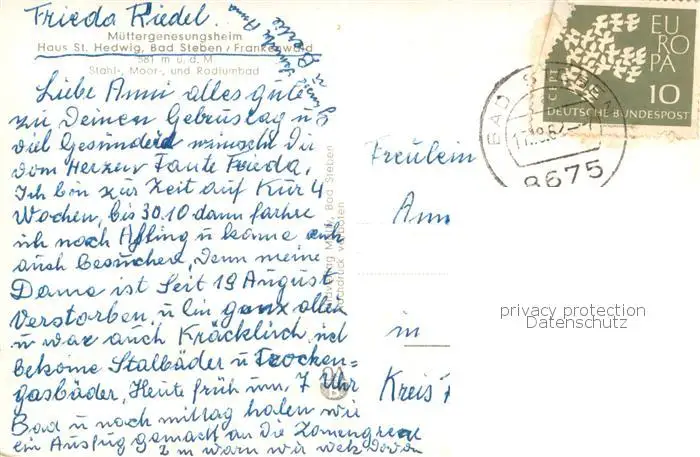 Frieda Riedel.
Müttergenesungsheim
Haus St. Hedwig, Bad Steben / Frankenwald
581 m ü. d. M
Stahl-, Moor-, und Radiumbad
Liebe Anni alles gute
zu Deinen Gebrustag u
viel Gesundeid wünscht Dir
vom Herzen Tante Frieda,
Ich bin zur Zeit auf Kur 4
Wochen, bis 30.10 dann fahre
ich noch Aßling u könne euch
auch Besuchen, Denn meine
Dame ist Seit 19 August
Verstorben, u bin ganz allein
u war auch Kräcklich, und
bekome Stalbäder u Trocken=
gasbäder, Heute früh um 7 Uhr
Bad u nach mittag haben wir
ein Ausflug gemacht an die Zonengrenze
2 m warn wir weck Davon
Bad Steben
Nachdruck verboten
EUROPA
10
DEUTSCHE BUNDESPOST
BAD STEBEN
8675
Freulein
Ann
in
Kreis
privacy protection
Datenschutz